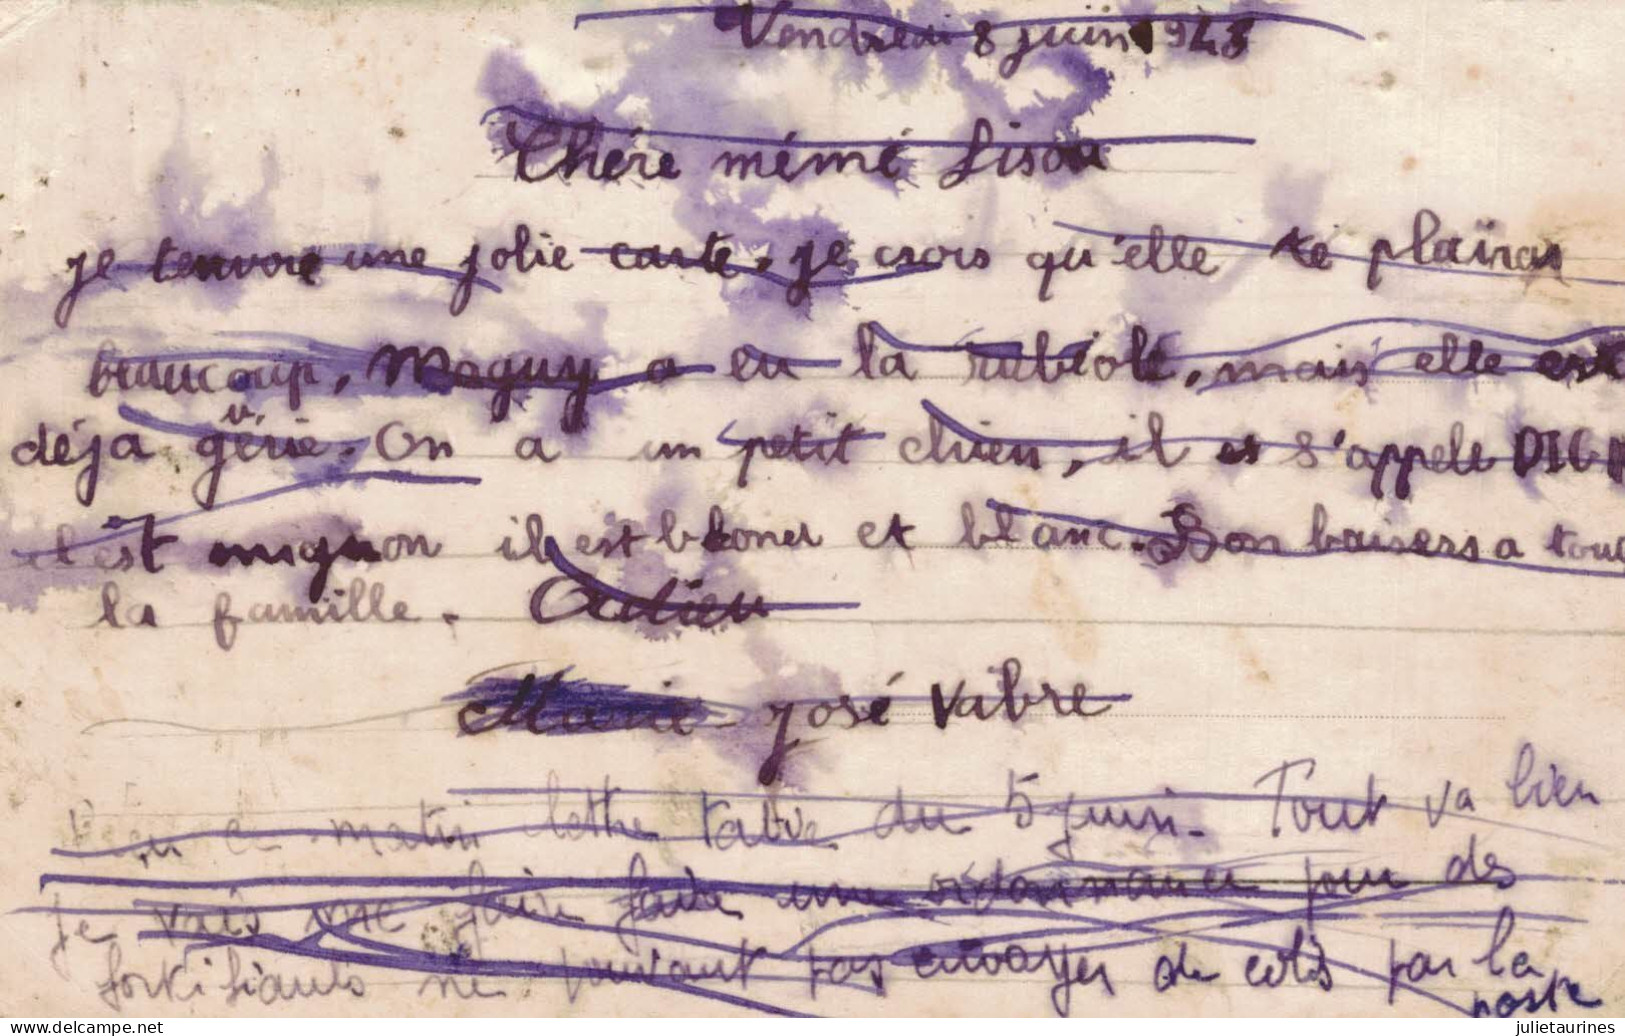 Vendredi 8 juin 1945
Chére mémé Lison
je tenvoie une jolie carte, je crois qu'elle te plaîras
beaucoup, Maguy a eu la rubéole, mais elle est
déja guérie. On a un petit chien, il s'appele
est mignon il est blond et blanc. Bon baisers a toute
la famille. Adieu
Marie José Vabre
Reçu ce matin lettre du 5 juin. Tout va bien
Je vais me faire faire une ordonnance pour des
fortifiants ne pouvant pas envoyer de colis par la
poste
julietaurines
delcampe.net